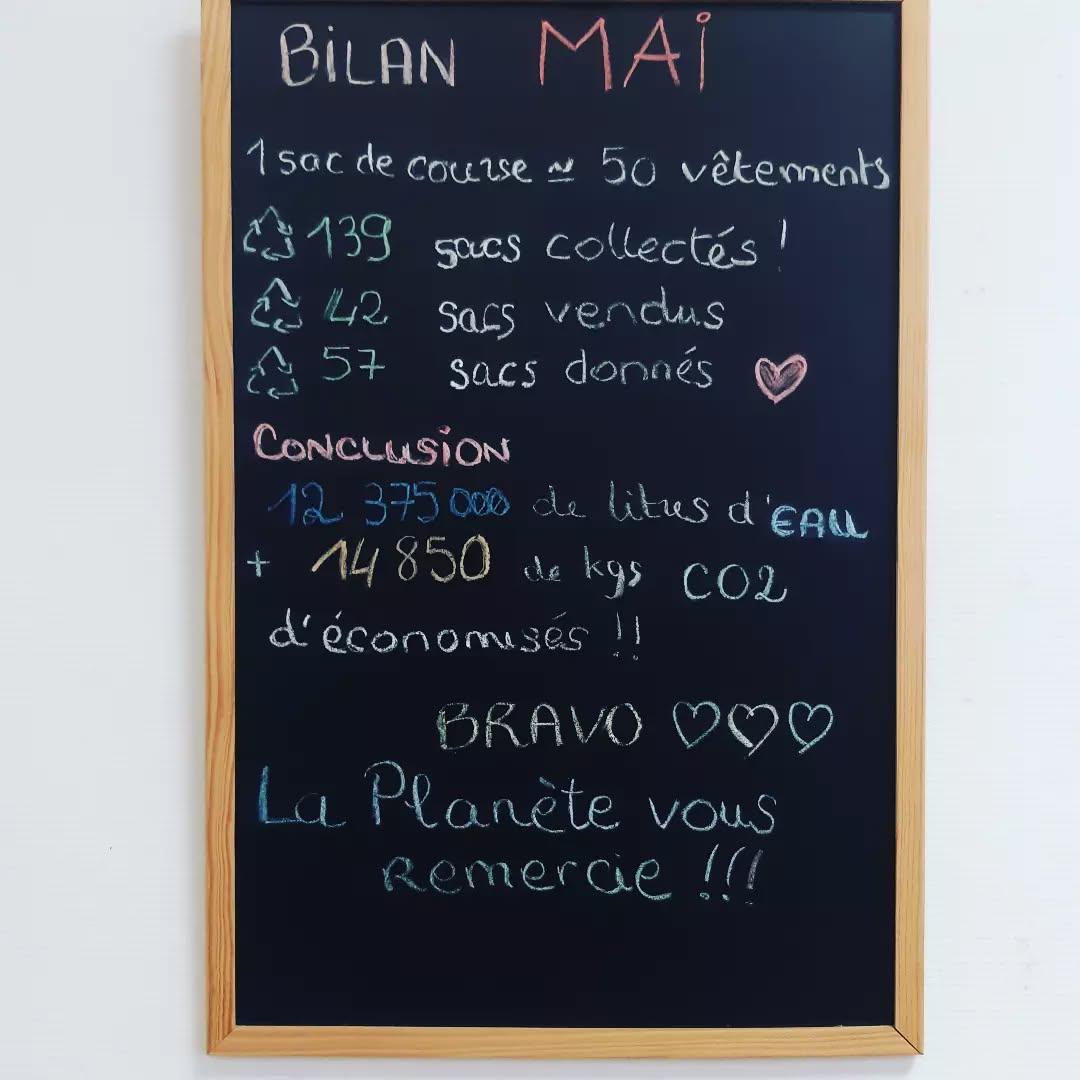 BiLAN MAi
1 sac de course ≃ 50 vêtements
139 sacs collectés !
42 sacs vendus
57 sacs donnés
CONCLUSiON
12 375 000 de litres d'EAU
+ 14 850 de kgs CO2
d'économisés !!
BRAVO
La Planète vous
Remercie !!!